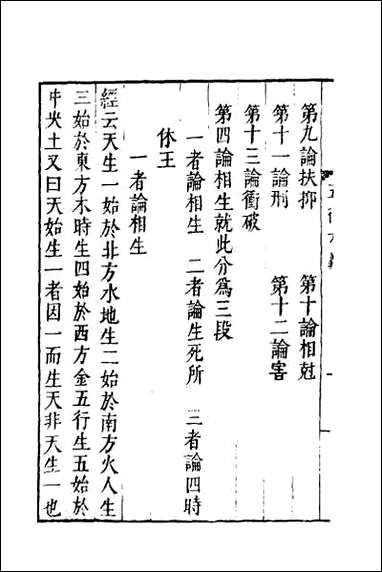 五行大義
第九論扶抑　第十論相尅
第十一論刑　第十二論害
第十三論衝破
第四論相生就此分爲三段
一者論相生　二者論生死所　三者論四時
休王
一者論相生
經云天生一始於北方水地生二始於南方火人生
三始於東方木時生四始於西方金五行生五始於
中央土又曰天始生一者因一而生天非天生一也